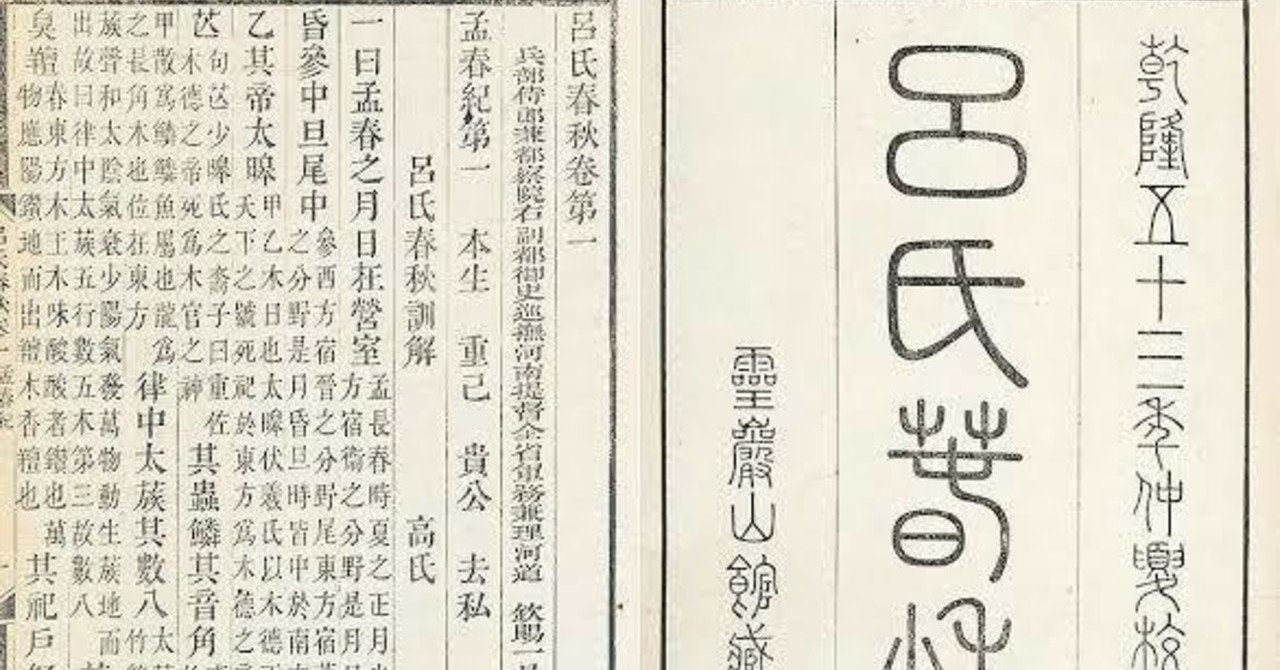 乾隆五十三年仲夏校
呂氏春秋
靈巖山館藏
呂氏春秋卷第一
兵部侍郎兼都察院右副都御史巡撫河南提督全省軍務兼理河道 欽賜一品
孟春紀第一 本生 重己 貴公 去私
呂氏春秋訓解 高氏
一曰孟春之月日在營室孟長春時夏之正月
方宿衞之分野是月
昏參中旦尾中參西方宿晉之分野尾東方宿
之分野是月昏旦時皆中於南
乙其帝太皞甲乙木日也太皞伏羲氏以木德
天下之號死祀於東方爲木德之
其神句芒句芒少皞氏之裔子曰重佐
木德之帝死爲木官之神其蟲鱗其音角
甲散爲鱗鱗魚屬也龍爲
之長角木也位在東方律中太蔟其數八竹太
蔟聲和太陰氣衰少陽氣發萬物動生蔟地而
出故曰律中太蔟五行數五木第三故數八
臭羶春東方木王木味酸酸者鑽也萬
物應陽鑽地而出羶木香羶也其祀戶